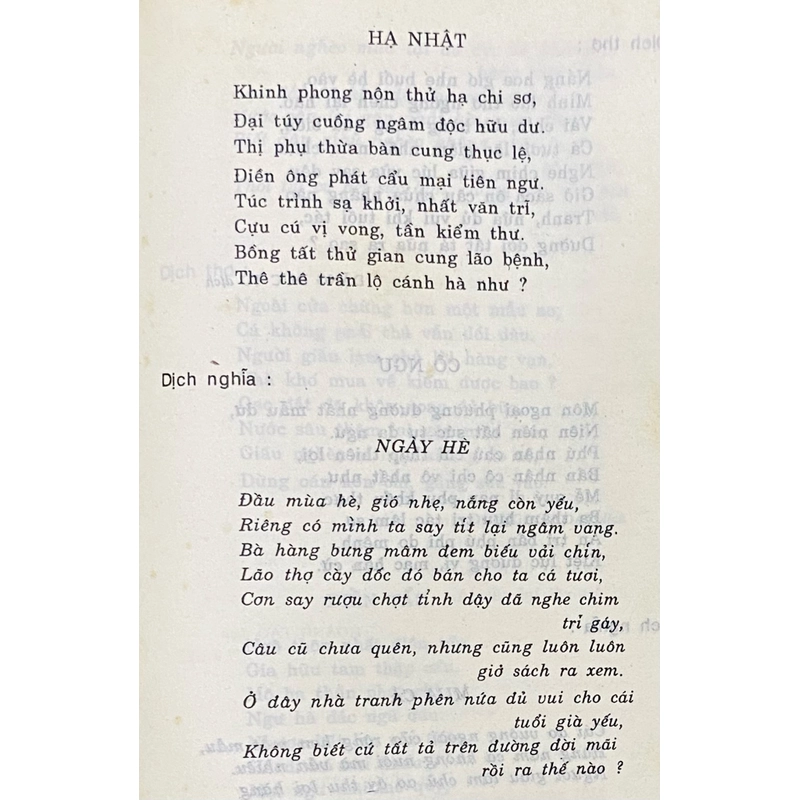 HẠ NHẬT
Khinh phong nộn thử hạ chi sơ,
Đại túy cuồng ngâm độc hữu dư.
Thị phụ thừa bàn cung thục lệ,
Điền ông phát cẩu mại tiên ngư.
Túc trình sạ khởi, nhất văn trĩ,
Cựu cú vị vong, tần kiểm thư.
Bồng tất thử gian cung lão bệnh,
Thê thê trần lộ cánh hà như ?
Dịch nghĩa :
NGÀY HÈ
Đầu mùa hè, gió nhẹ, nắng còn yếu,
Riêng có mình ta say tít lại ngâm vang.
Bà hàng bưng mâm đem biếu vải chín,
Lão thợ cày dốc đó bán cho ta cá tươi,
Cơn say rượu chợt tỉnh dậy đã nghe chim
trĩ gáy,
Câu cũ chưa quên, nhưng cũng luôn luôn
giở sách ra xem.
Ở đây nhà tranh phên nứa đủ vui cho cái
tuổi già yếu,
Không biết cứ tất tả trên đường đời mãi
rồi ra thế nào ?